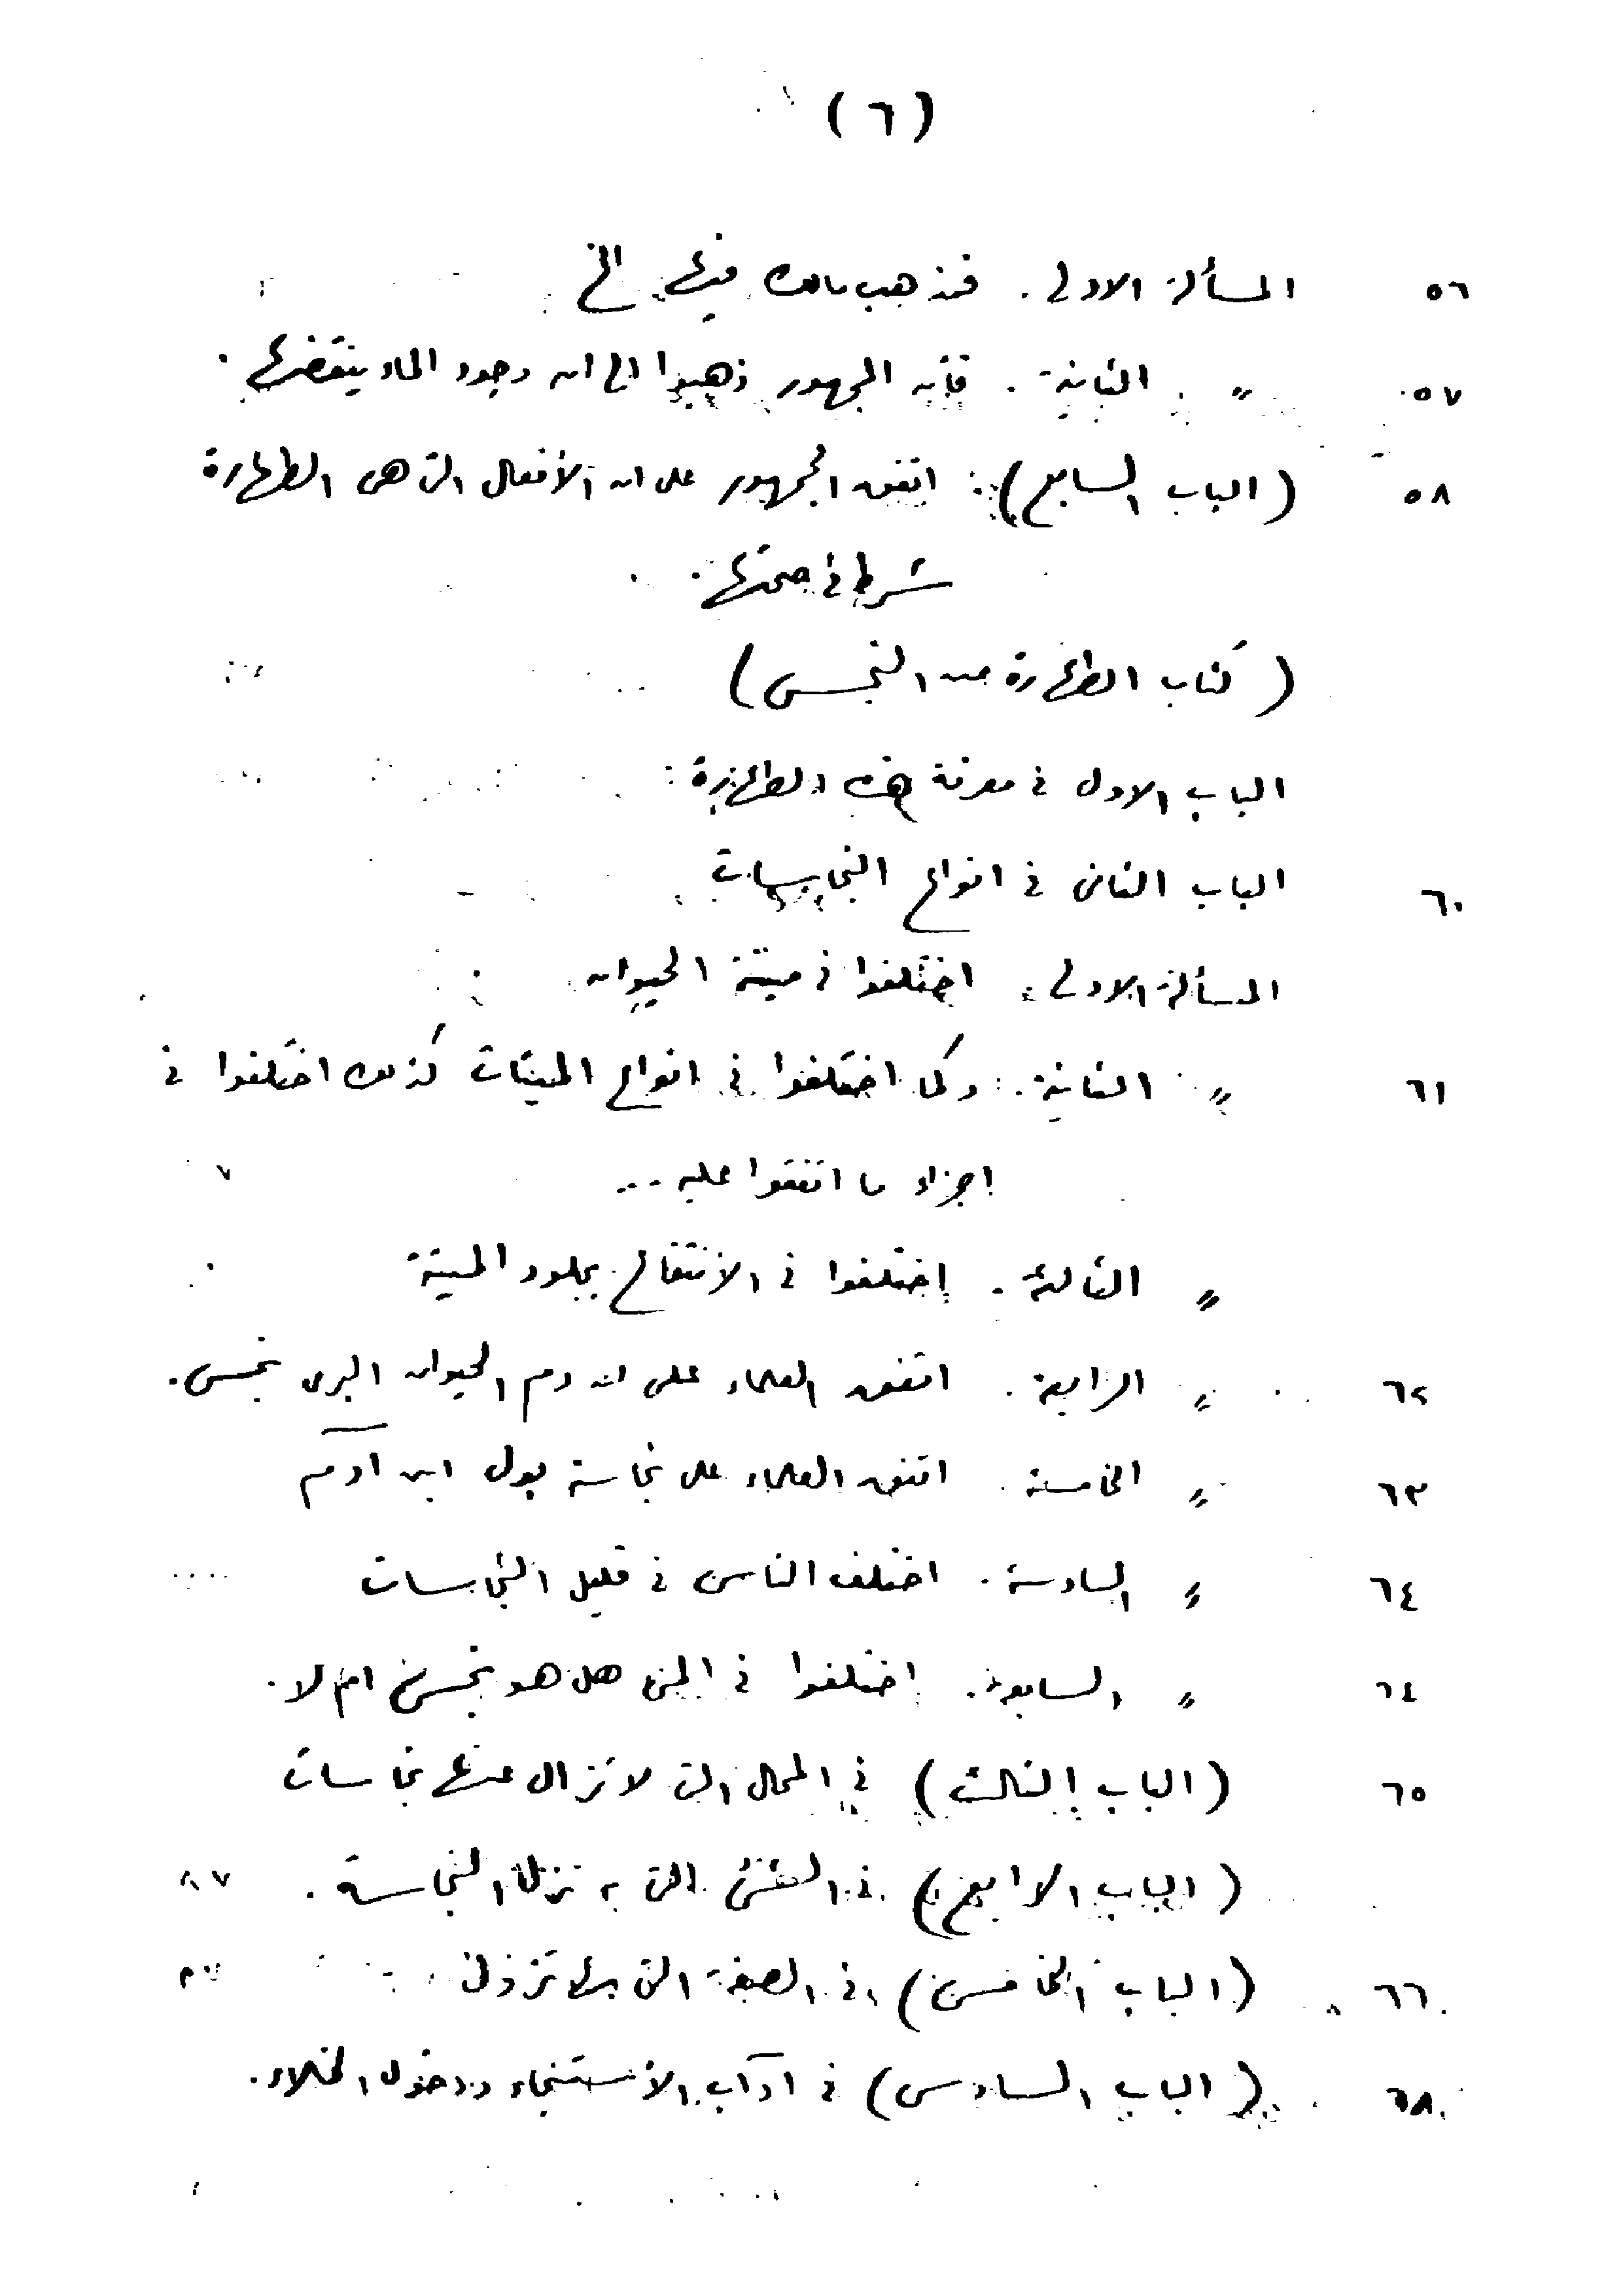 (٦)
٥٦ المسألة الاولى . فذهب مالك فيها الخ
٥٧ " الثانية . فأن الجمهور ذهبوا الى ان وجود الماء ينقضها .
٥٨ (الباب السابع) : اتفق الجمهور على ان الأفعال التى هى الطهارة
شرط فى صحتها .
(كتاب الطهارة من النجس)
الباب الاول فى معرفة هذه الطهارة
٦٠ الباب الثانى فى انواع النجاسات
المسألة الاولى . اختلفوا فى ميتة الحيوان
٦١ " الثانية . وكما اختلفوا فى انواع الميتات كذلك اختلفوا فى
اجزاء ما اتفقوا عليه ...
" الثالثة . إختلفوا فى الأنتفاع بجلود الميتة
٦٢ " الرابعة . اتفق العلماء على ان دم الحيوان البرى نجس .
٦٣ " الخامسة . اتفق العلماء على نجاسة بول ابن آدم
٦٤ " السادسة . اختلف الناس فى قليل النجاسات
٦٤ " السابعة . اختلفوا فى المنى هل هو نجس ام لا .
٦٥ (الباب الثالث) فى المحال التى لا تزال عنها نجاسات
(الباب الرابع) فى الشئ التى به تزال النجاسة .
٦٦ (الباب الخامس) فى الصفة التى بها تزول
٦٨ (الباب السادس) فى آداب الأستنجاء ودخول الخلاء .